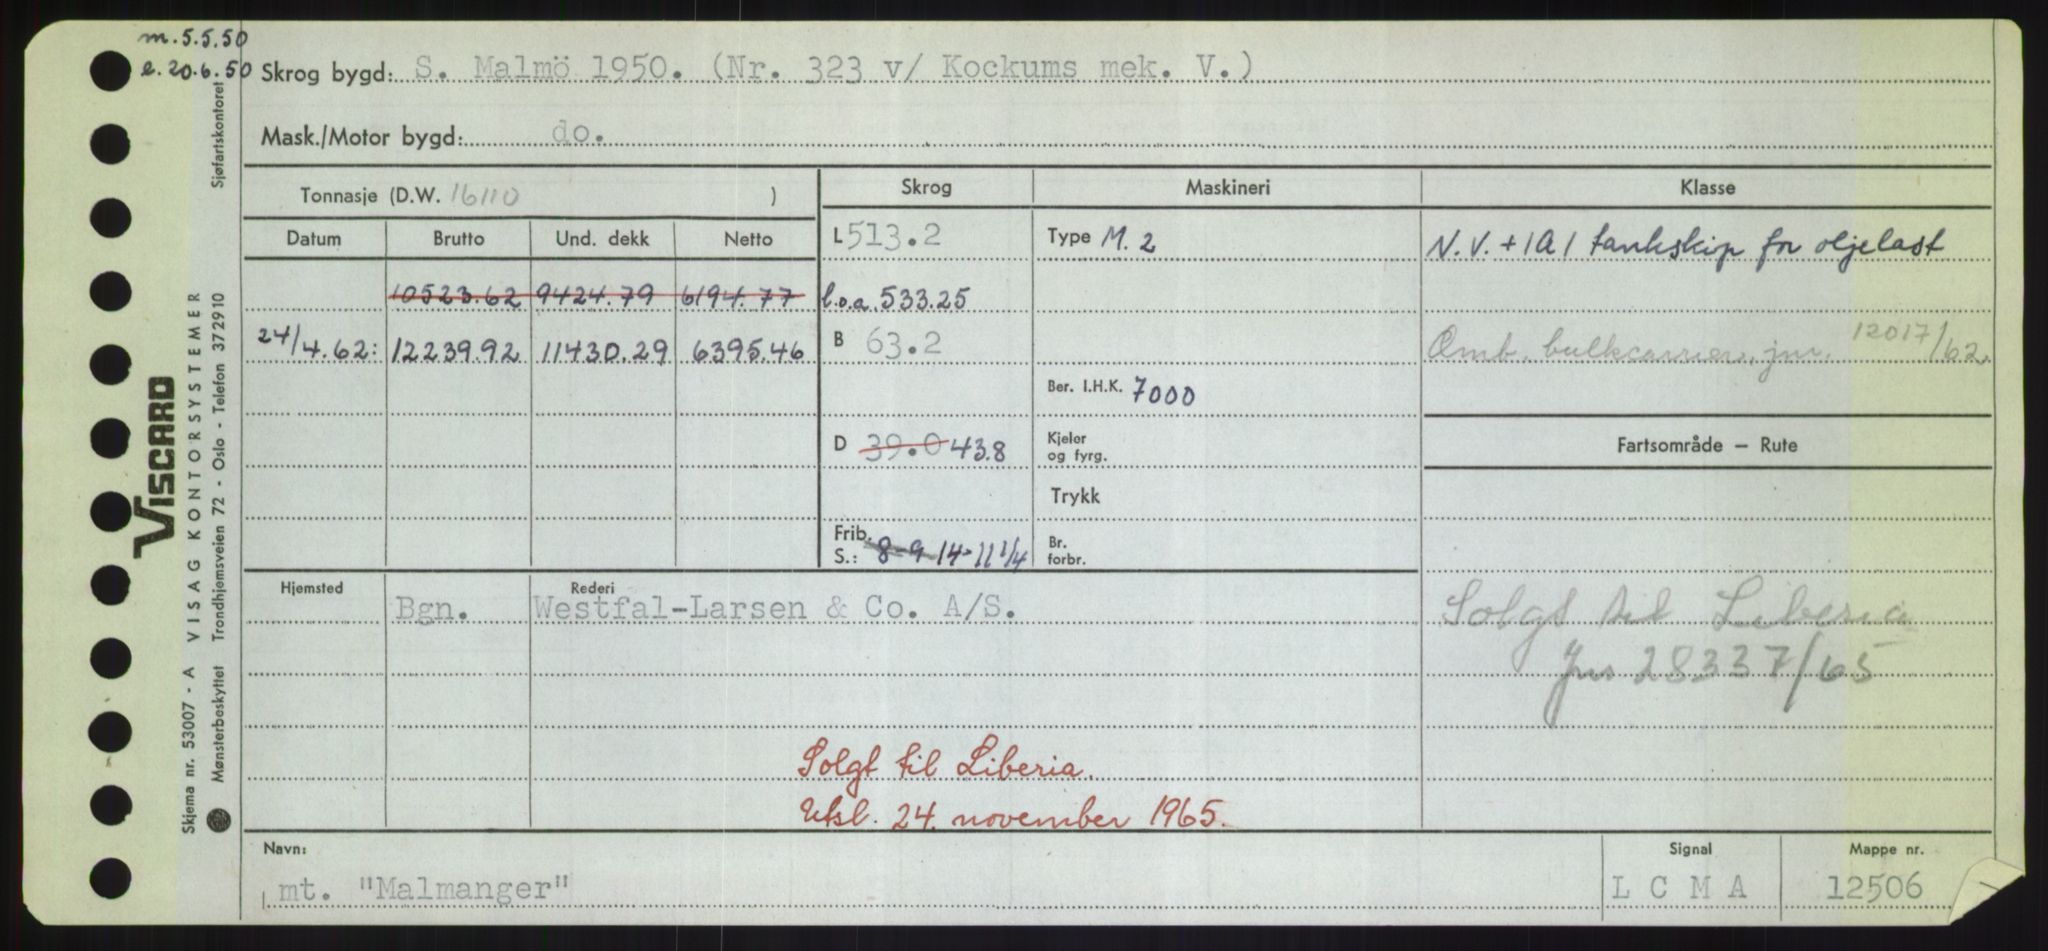 m. 5.5.50
e. 20.6.50
Skrog bygd: S. Malmö 1950. (Nr. 323 v/ Kockums mek. V.)
Mask./Motor bygd: do.
Tonnasje (D.W. 16110 )
Skrog
Maskineri
Klasse
Datum
Brutto
Und. dekk
Netto
L 513.2
Type M. 2
N.V. + 1A1 tankskip for oljelast
10523.62 9424.79 6194.77
l.o.a. 533.25
24/4.62: 12239.92 11430.29 6395.46
B 63.2
Omb. bulkcarrier, jnr. 12017/62
Ber. I.H.K. 7000
D 39.0 43.8
Kjeler
og fyrg.
Fartsområde – Rute
Trykk
Frib.
S.: 8-9 14-11 1/4
Br.
forbr.
Hjemsted
Rederi
Bgn. Westfal-Larsen & Co. A/S.
Solgt til Liberia
Jnr 28337/65
Solgt til Liberia.
Utsl. 24. november 1965.
Navn:
Signal
Mappe nr.
mt. "Malmanger"
L C M A
12506
VISCARD
Skjema nr. 53007 - A VISAG KONTORSYSTEMER
Mønsterbeskyttet Trondhjemsveien 72 - Oslo - Telefon 372910 Sjøfartskontoret